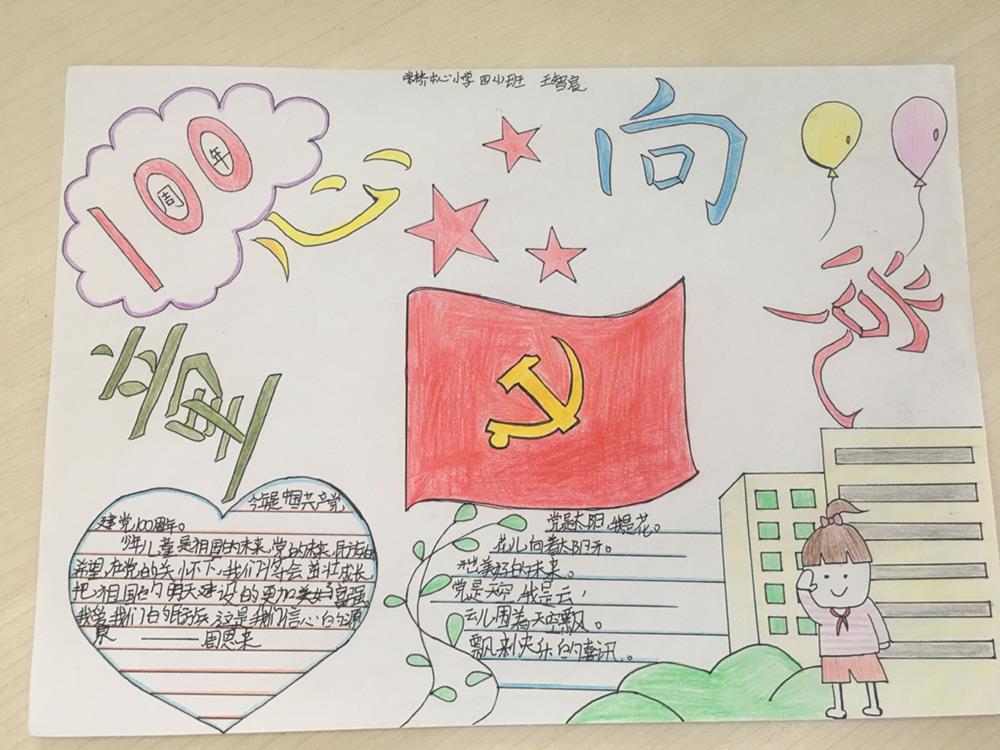 中心小学 四(1)班 王智宸
100
周年
童心向党
今年是中国共产党
建党100周年。
少年儿童是祖国的未来,党的未来,民族的
希望,在党的关心下,我们将会茁壮成长
把祖国的明天建设的更加美好富强
我爱我们的民族,这是我们信心的源
泉 ——周恩来
党是太阳,我是花。
花儿向着太阳开。
把美好的未来。
党是天空,我是云,
云儿用着天空飘。
飘来快乐的喜讯。